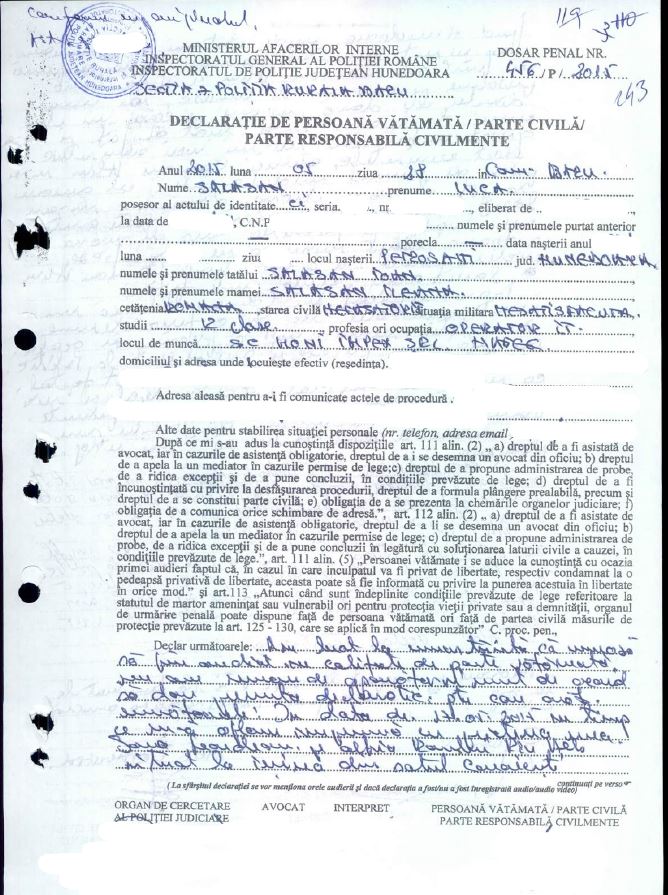 119
110
MINISTERUL AFACERILOR INTERNE
INSPECTORATUL GENERAL AL POLIȚIEI ROMÂNE
INSPECTORATUL DE POLIȚIE JUDEȚEAN HUNEDOARA
SECȚIA 7 POLIȚIA RURALĂ BARU
DOSAR PENAL NR.
456 / P / 2015
243
DECLARAȚIE DE PERSOANĂ VĂTĂMATĂ / PARTE CIVILĂ/
PARTE RESPONSABILĂ CIVILMENTE
Anul 2015 luna 05 ziua 28 în Com. BARU
Nume SALASAN prenume LUCA
posesor al actului de identitate CI, seria, nr., eliberat de
la data de , C.N.P numele și prenumele purtat anterior
porecla data nașterii anul
luna ziu locul nașterii jud. HUNEDOARA
numele și prenumele tatălui SALASAN IOAN
numele și prenumele mamei SALASAN ILEANA
cetățenia ROMANA, starea civilă NECASATORIT situația militara NESATISFACUTA
studii 12 clase, profesia ori ocupația OPERATOR IT.
locul de muncă SC HONI IMPEX SRL
domiciliul și adresa unde locuiește efectiv (reședința).
Adresa aleasă pentru a-i fi comunicate actele de procedură .
Alte date pentru stabilirea situației personale (nr. telefon, adresa email
După ce mi s-au adus la cunoștință dispozițiile art. 111 alin. (2) „ a) dreptul de a fi asistată de
avocat, iar în cazurile de asistență obligatorie, dreptul de a i se desemna un avocat din oficiu; b) dreptul
de a apela la un mediator în cazurile permise de lege;c) dreptul de a propune administrarea de probe,
de a ridica excepții și de a pune concluzii, în condițiile prevăzute de lege; d) dreptul de a fi
încunoștințată cu privire la desfășurarea procedurii, dreptul de a formula plângere prealabilă, precum și
dreptul de a se constitui parte civilă; e) obligația de a se prezenta la chemările organelor judiciare; f)
obligația de a comunica orice schimbare de adresă.”, art. 112 alin. (2) „ a) dreptul de a fi asistate de
avocat, iar în cazurile de asistență obligatorie, dreptul de a li se desemna un avocat din oficiu; b)
dreptul de a apela la un mediator în cazurile permise de lege; c) dreptul de a propune administrarea de
probe, de a ridica excepții și de a pune concluzii în legătură cu soluționarea laturii civile a cauzei, în
condițiile prevăzute de lege.”, art. 111 alin. (5) „Persoanei vătămate i se aduce la cunoștință cu ocazia
primei audieri faptul că, în cazul în care inculpatul va fi privat de libertate, respectiv condamnat la o
pedeapsă privativă de libertate, aceasta poate să fie informată cu privire la punerea acestuia în libertate
în orice mod.” și art.113 „Atunci când sunt îndeplinite condițiile prevăzute de lege referitoare la
statutul de martor amenințat sau vulnerabil ori pentru protecția vieții private sau a demnității, organul
de urmărire penală poate dispune față de persoana vătămată ori față de partea civilă măsurile de
protecție prevăzute la art. 125 - 130, care se aplică în mod corespunzător” C. proc. pen.,
Declar următoarele: Am luat la cunoștință că urmează
să fiu audiat în calitate de parte vătămată
de acord
să dau declarație. arăt
următoarele: În data de 2015 în timp
ce mă aflam împreună cu
și
din satul
continuați pe verso
( La sfârșitul declarației se vor menționa orele audierii și dacă declarația a fost/nu a fost înregistrată audio/audio video)
ORGAN DE CERCETARE AVOCAT INTERPRET PERSOANĂ VĂTĂMATĂ / PARTE CIVILĂ
AL POLIȚIEI JUDICIARE PARTE RESPONSABILĂ CIVILMENTE